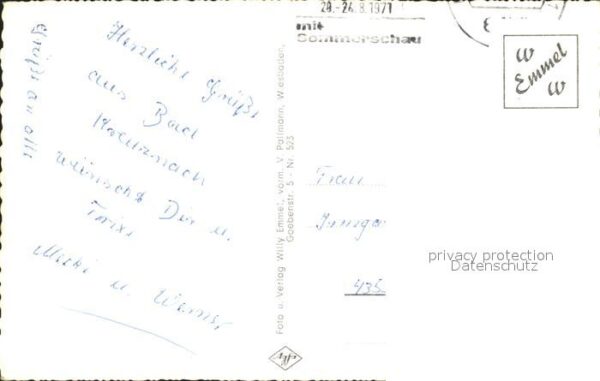 20.-24.8.1971
mit
Sommerschau
W
Emmel
W
Grüße an alle
Herzliche Grüße
aus Bad
Kreuznach
wünscht Dir u.
Trixi
Mecki u. Werner
Foto u. Verlag Willy Emmel, vorm. V. Pollmann, Wiesbaden,
Goebenstr. 5 - Nr. 523
Frau
435
privacy protection
Datenschutz